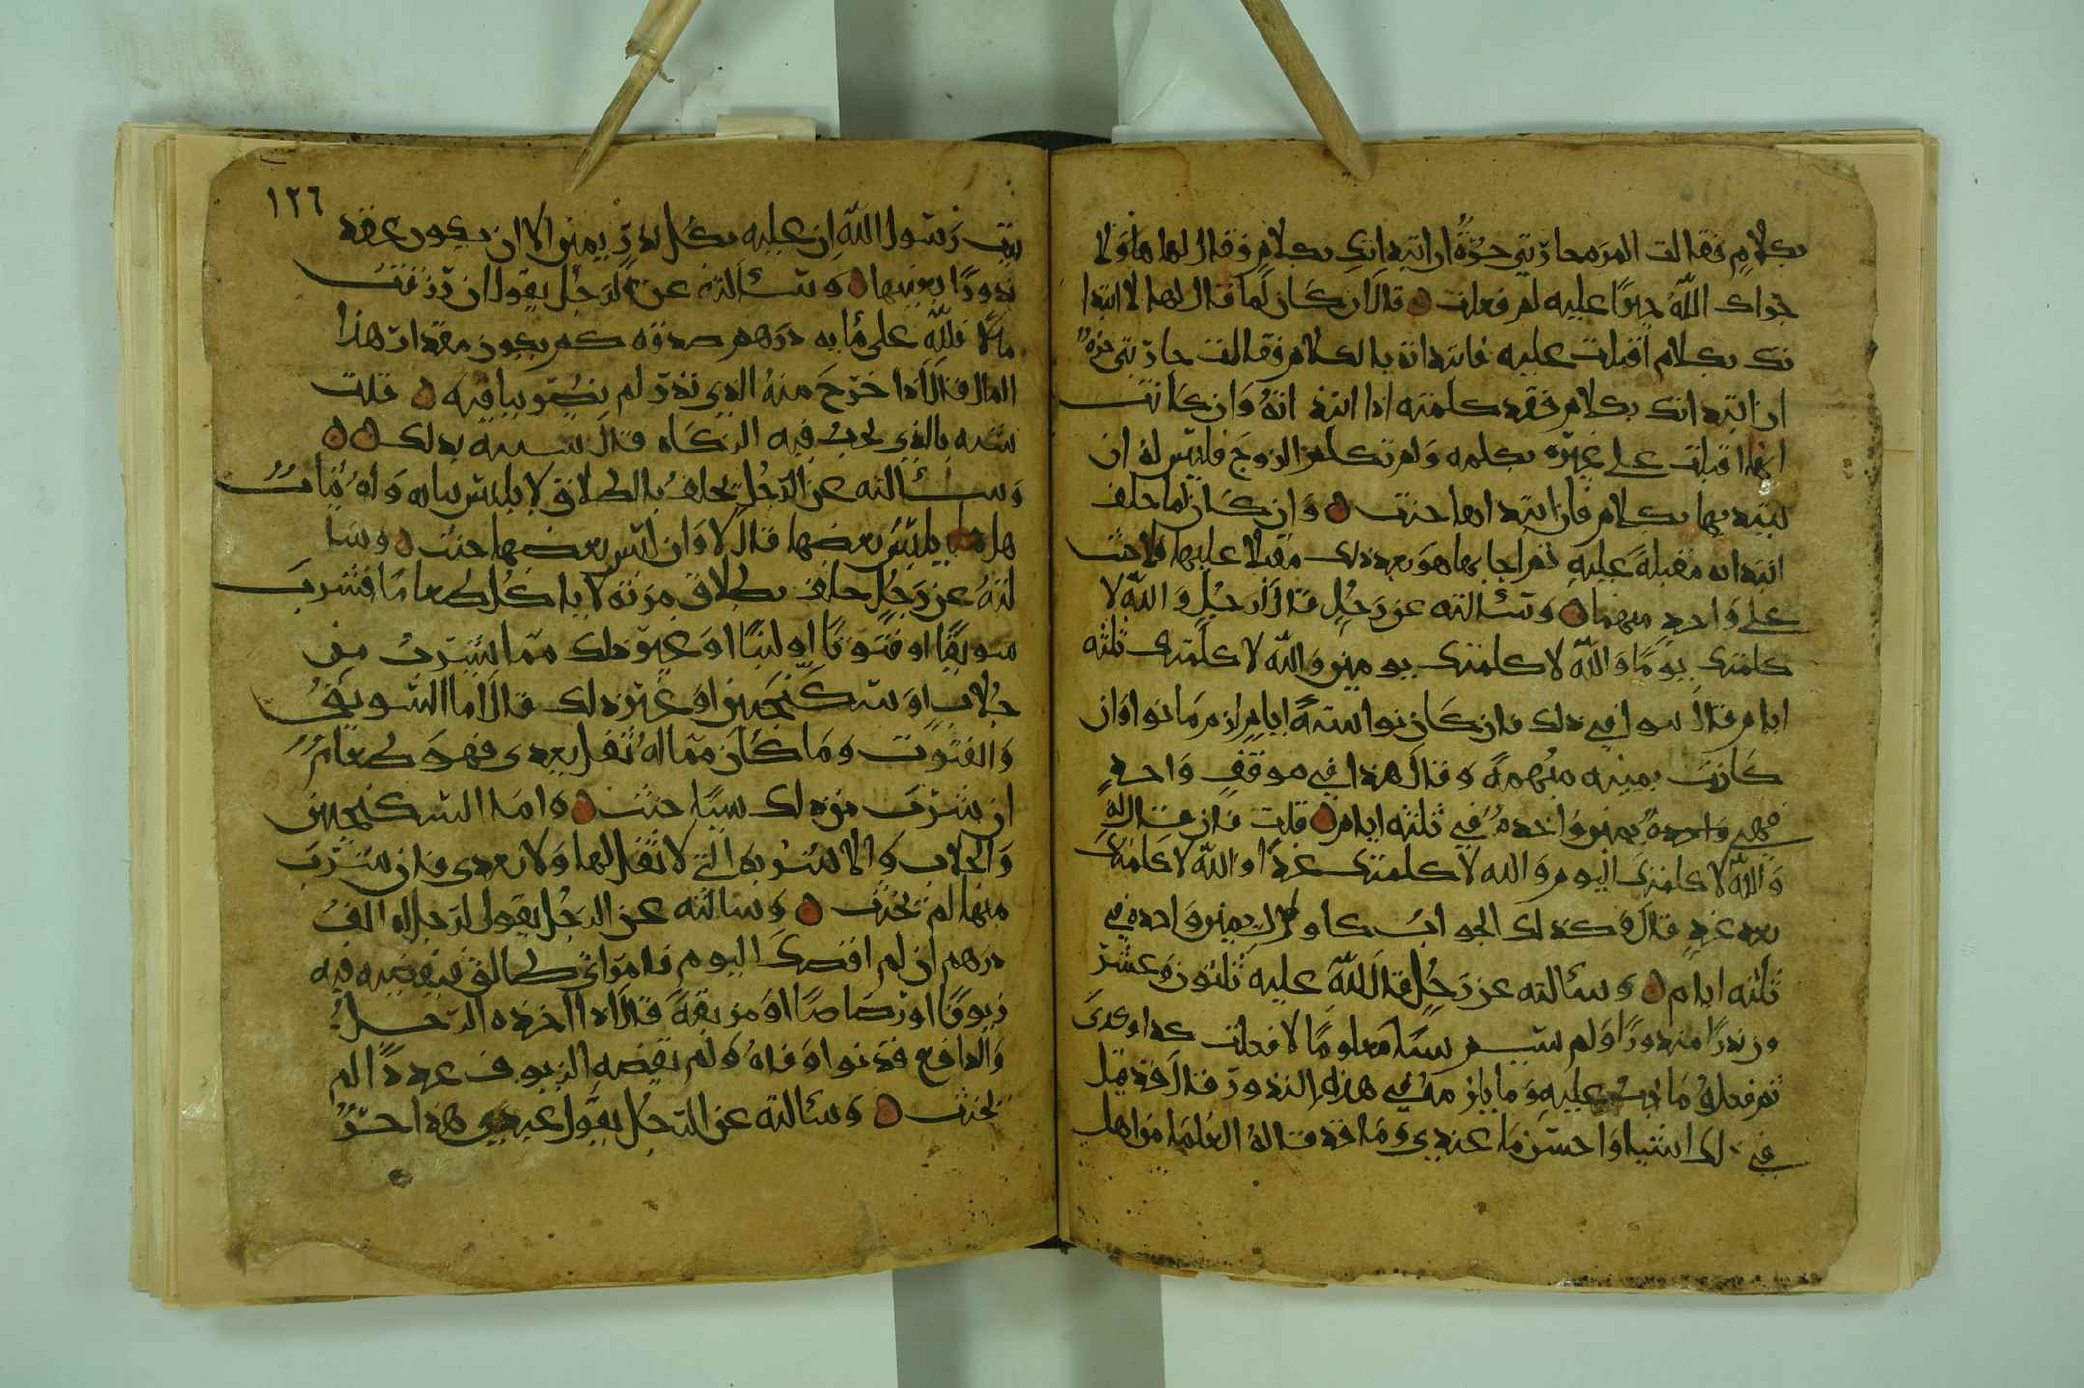 بكلامٍ فقالت المره جاريتي حرّةٌ ان ابتداتك بكلامٍ فقال لها هاولا
جواب الله حينًا عليه لم فعلت قال ان كان لما قال لها لا ابتدا
تك بكلام اقبلت عليه فابتداته بالكلام فقالت جاريتي حرةٌ
ان ابتداتك بكلام فقد كلمته اذا ابتد اتهُ وان كانت
انما اقبلت على غيره بكلمه ولم تكلم الزوج فليس له ان
يبتديها بكلام فان ابتداها حنث وان كان لما حلف
ابتداته مقبلةً عليه ثم اجابها هو بعد ذلك مقبلا عليها فلا حنث
على واحدٍ منهما وسألته عن رجُلٍ قال لرجُلٍ والله لا
كلمتك يومًا والله لا كلمتك يومين والله لا كلمتك ثلثه
ايام قال سوا في ذلك فان كان نوا ستةً ايام لزم ما نوا وان
كانت يمينه مبهمةً وقال هذا في موقفٍ واحدٍ
فهي واحدةٌ يمين واحدهٌ في ثلثه ايام قلت فان قال له
والله لا كلمتك اليوم والله لا كلمتك غدًا والله لا كلمتك
بعد غدٍ قال وكذلك الجوابُ كاول يمين واحده في
ثلثه ايام وسألته عن رجُلٍ قال لله عليه ثلثون وعشر
ون نذرًا منذورًا ولم يسم سيًا معلومًا لا فعلت كذا وكذى
ثم فعله ما يجب عليه وما يلزمه في هذه النذور قال قد قيل
في ذلك اشيا واحسن ما عندي وما قد قاله العلما من اهل
١٢٦
بيت رسول الله ان عليه بكل نذرٍ يمين الا ان يكون عقد
نذورًا بعينها وسألته عن الرجُل يقول ان رزقتُ
مالًا فلله علي مايه درهم صدقه كم يكون مقدار هذا
المال قال اذا خرج منهُ الذي نذر لم يضر بباقيه قلت
شبه بالذي تجب فيه الزكاه قال شبيه بذلك
وسألته عن الرجُل يحلفُ بالطلاق لا يلبس ثيابه وله ثيابٌ
هل يلبسُ بعضها قال لا وان لبس بعضها حنث وسا
لتهُ عن رجُلٍ حلف بطلاق مرته لا ياكُل طعامًا فشرب
سويقًا او فتوتًا او لبنًا او غير ذلك مما يشربُ من
جُلابٍ او سكنجبين او غير ذلك قال اما السويقُ
والفتوت وما كان مما له ثفل يغدى فهو طعامٌ
ان شرب من ذلك سيًا حنث واما السكنجبين
والجلاب والاشربه التي لا ثقل لها ولا تغدى فان شرب
منها لم يحنث وسالته عن الرجُل يقول لرجلٍ له الفُ
درهم ان لم اقضك اليوم فامراتي طالق فيقضيه فيه
زيوفًا او رصاصًا او مزيقةً قال اذا اخذه الرجل
والدافع قد نوا وفاهُ ولم تنقصه الزيوف عددًا لم
يحنث وسألته عن الرجُل يقول عبدي هذا حرٌ